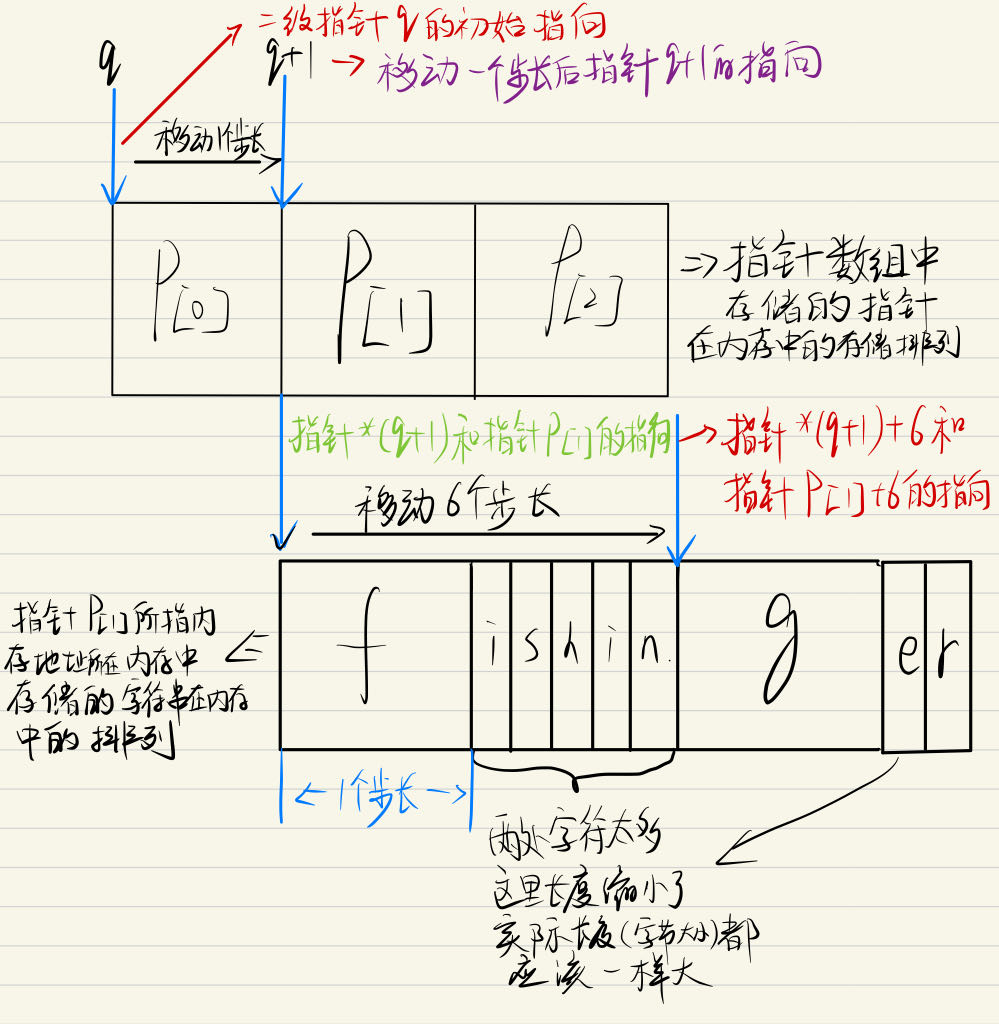 二级指针q的初始指向
q
q+1
移动一个步长后指针q+1的指向
移动1个步长
P[0]
P[1]
P[2]
=> 指针数组中
存储的指针
在内存中的存储排列
指针*(q+1)和指针P[1]的指向
指针*(q+1)+6和
指针P[1]+6的指向
移动6个步长
指针P[1]所指内
存地址所在内存中
存储的字符串在内存
中的排列
f
i
s
h
i
n
g
e
r
1个步长
两处字符太多
这里长度缩小了
实际长度(字节大小)都
应该一样大